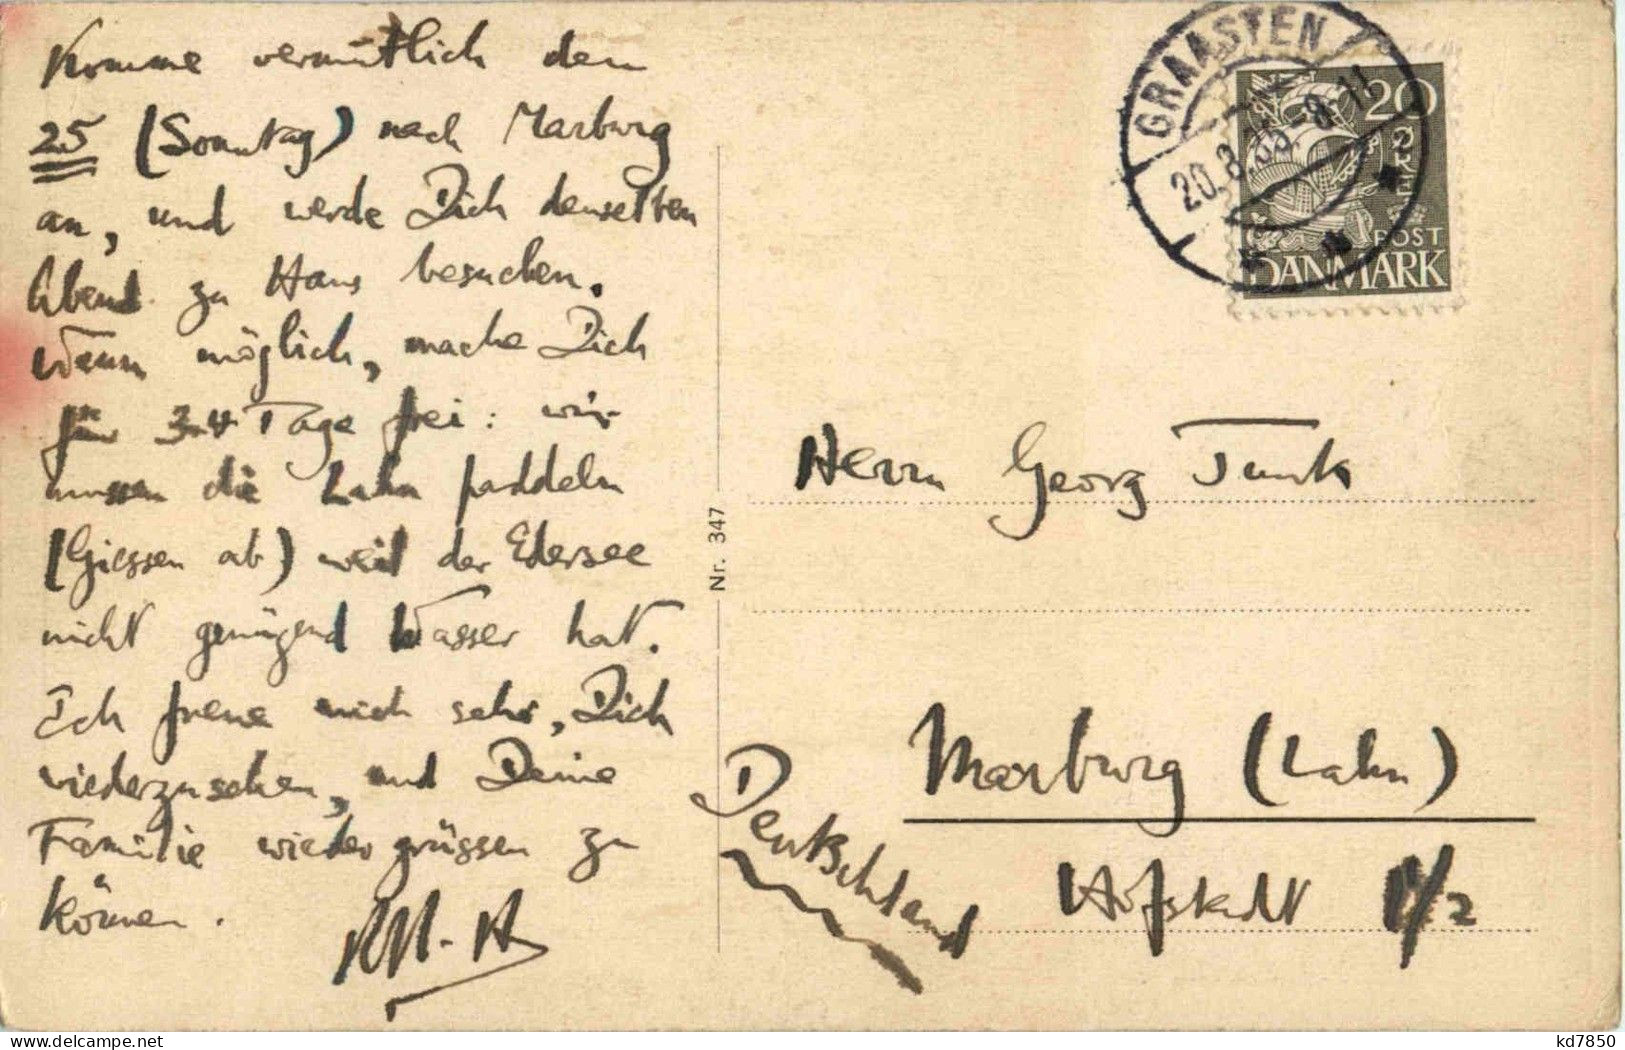 Komme vermutlich den
25 (Sonntag) nach Marburg
an, und werde Dich denselben
Abend zu Haus besuchen.
Wenn möglich, mache Dich
für 3-4 Tage frei: wir
mussen die Lahn paddeln
(Giessen ab) weil der Edersee
nicht genügend Wasser hat.
Ich freue mich sehr, Dich
wiederzusehen, und Deine
Familie wieder grüssen zu
können.
Nr. 347
GRAASTEN
20.8.35. 8-11
20
ØRE
POST
DANMARK
Herrn Georg Funk
Marburg (Lahn)
Hofstadt 1/2
Deutschland
kd7850